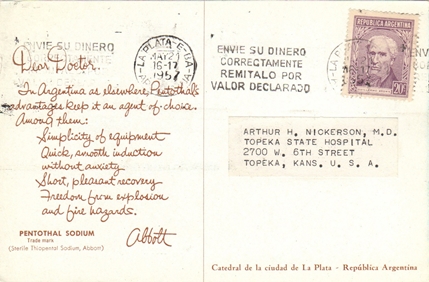 ENVIE SU DINERO
LA PLATA-E-BA
MAY 21
16-17
1957
Dear Doctor..
In Argentina as elsewhere, Pentothal's
advantages keep it an agent-of-choice.
Among them:
Simplicity of equipment
Quick, smooth induction
without anxiety
Short, pleasant recovery
Freedom from explosion
and fire hazards.
Abbott
PENTOTHAL SODIUM
Trade mark
(Sterile Thiopental Sodium, Abbott)
ENVIE SU DINERO
CORRECTAMENTE
REMITALO POR
VALOR DECLARADO
REPUBLICA ARGENTINA
20
ARTHUR H. NICKERSON, M.D.
TOPEKA STATE HOSPITAL
2700 W. 6TH STREET
TOPEKA, KANS. U. S. A.
Catedral de la ciudad de La Plata - República Argentina